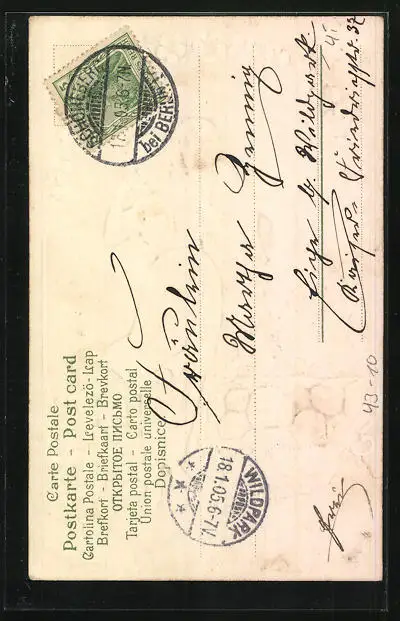 Carte Postale
Postkarte - Post card
Cartolina Postale - Levelező-Lap
Brefkort - Briefkaart - Brevkort
ОТКРЫТОЕ ПИСЬМО
Tarjeta postal - Carto postal
Union postale universelle
Dopisnice
bei BERLIN
WILDPARK
18.1.05.6-7V.
Fräulein
Martha
Eiche b. Wildpark
Kaiser-Friedrichstr. 37
43-10